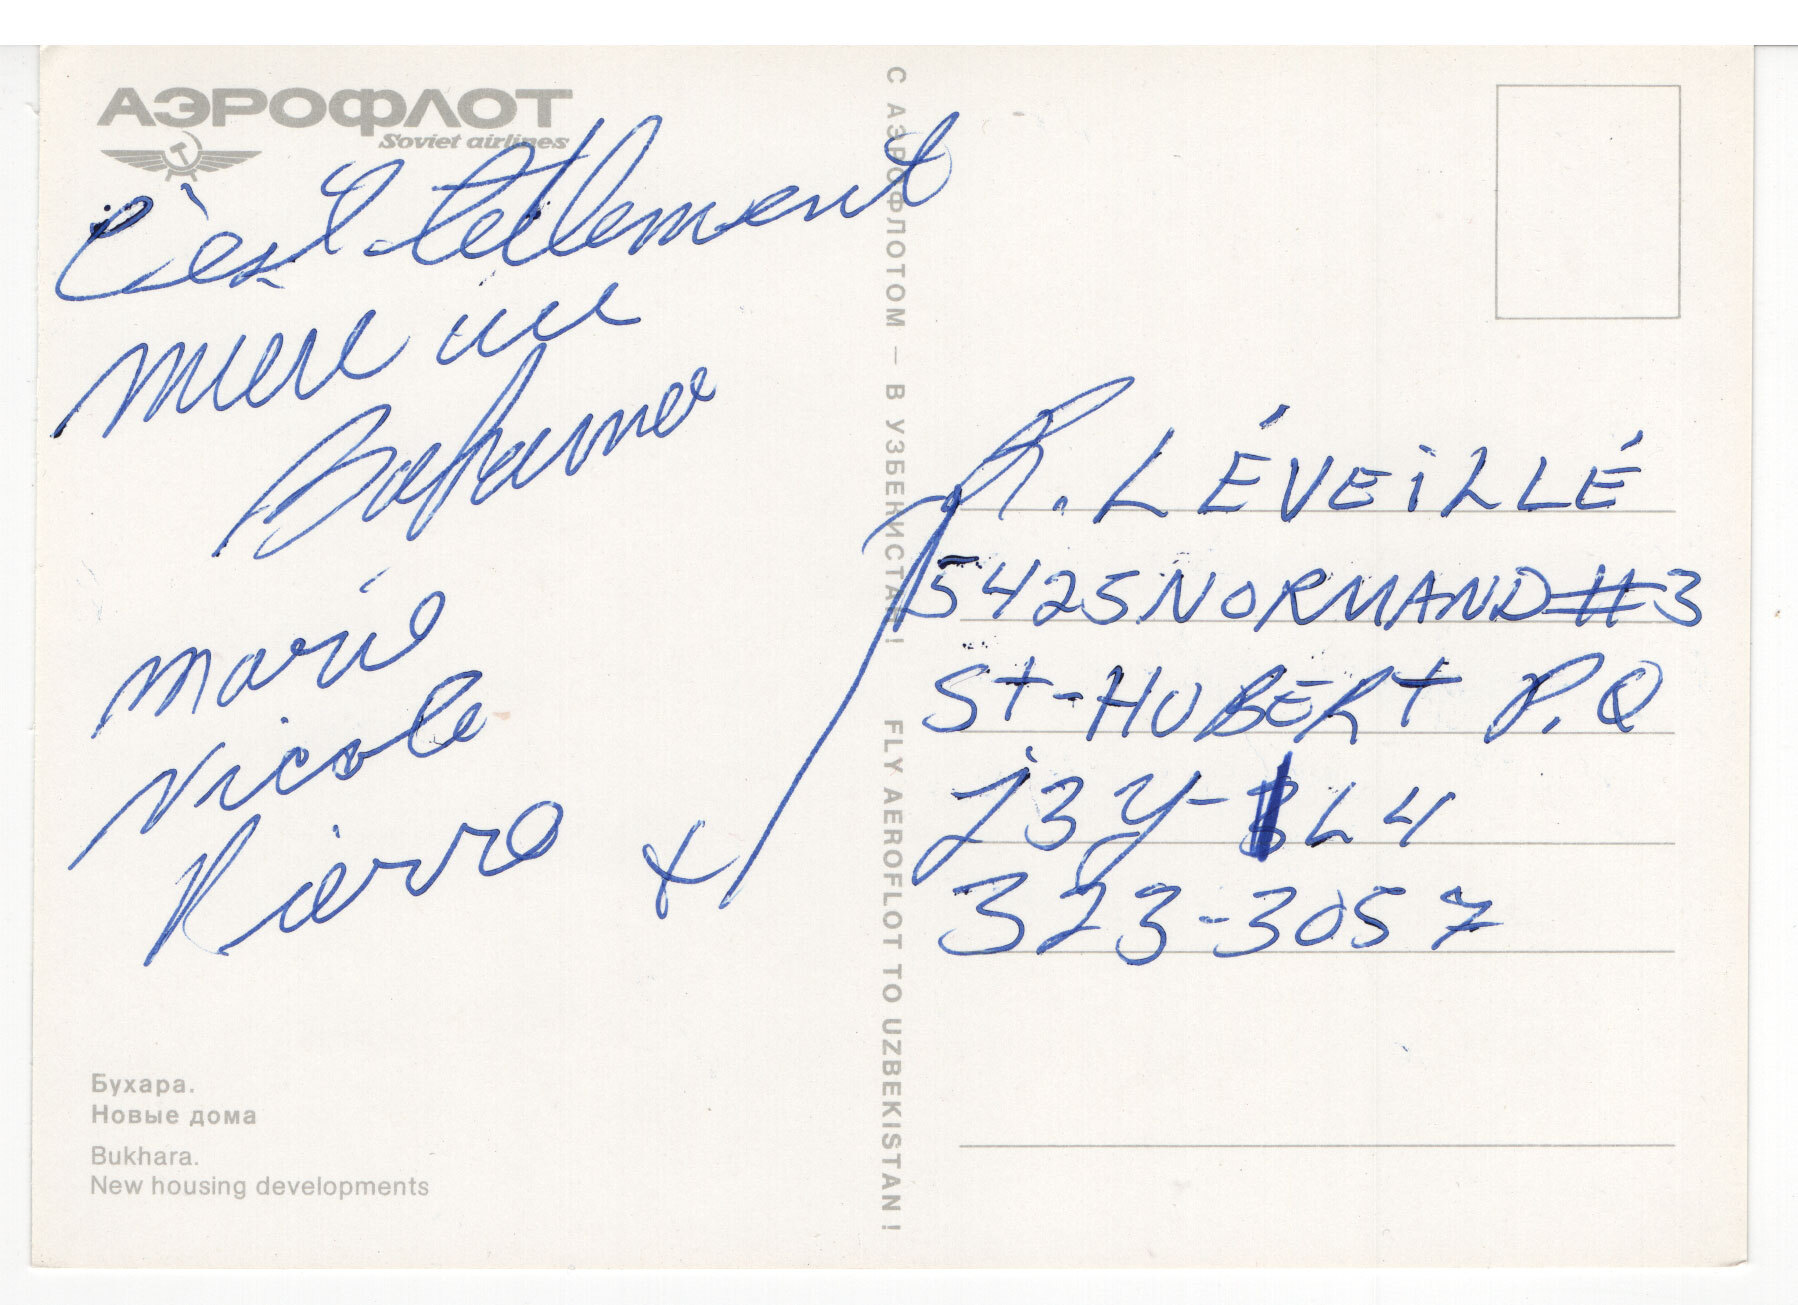 АЭРОФЛОТ
Soviet airlines
C'est tellement
mieux au
marie
Nicole
Pierre
С АЭРОФЛОТОМ – В УЗБЕКИСТАН! FLY AEROFLOT TO UZBEKISTAN!
R. LÉVEILLÉ
5425 NORMAND #3
St-HUBERT P.Q
J3Y-8L4
323-3057
Бухара.
Новые дома
Bukhara.
New housing developments